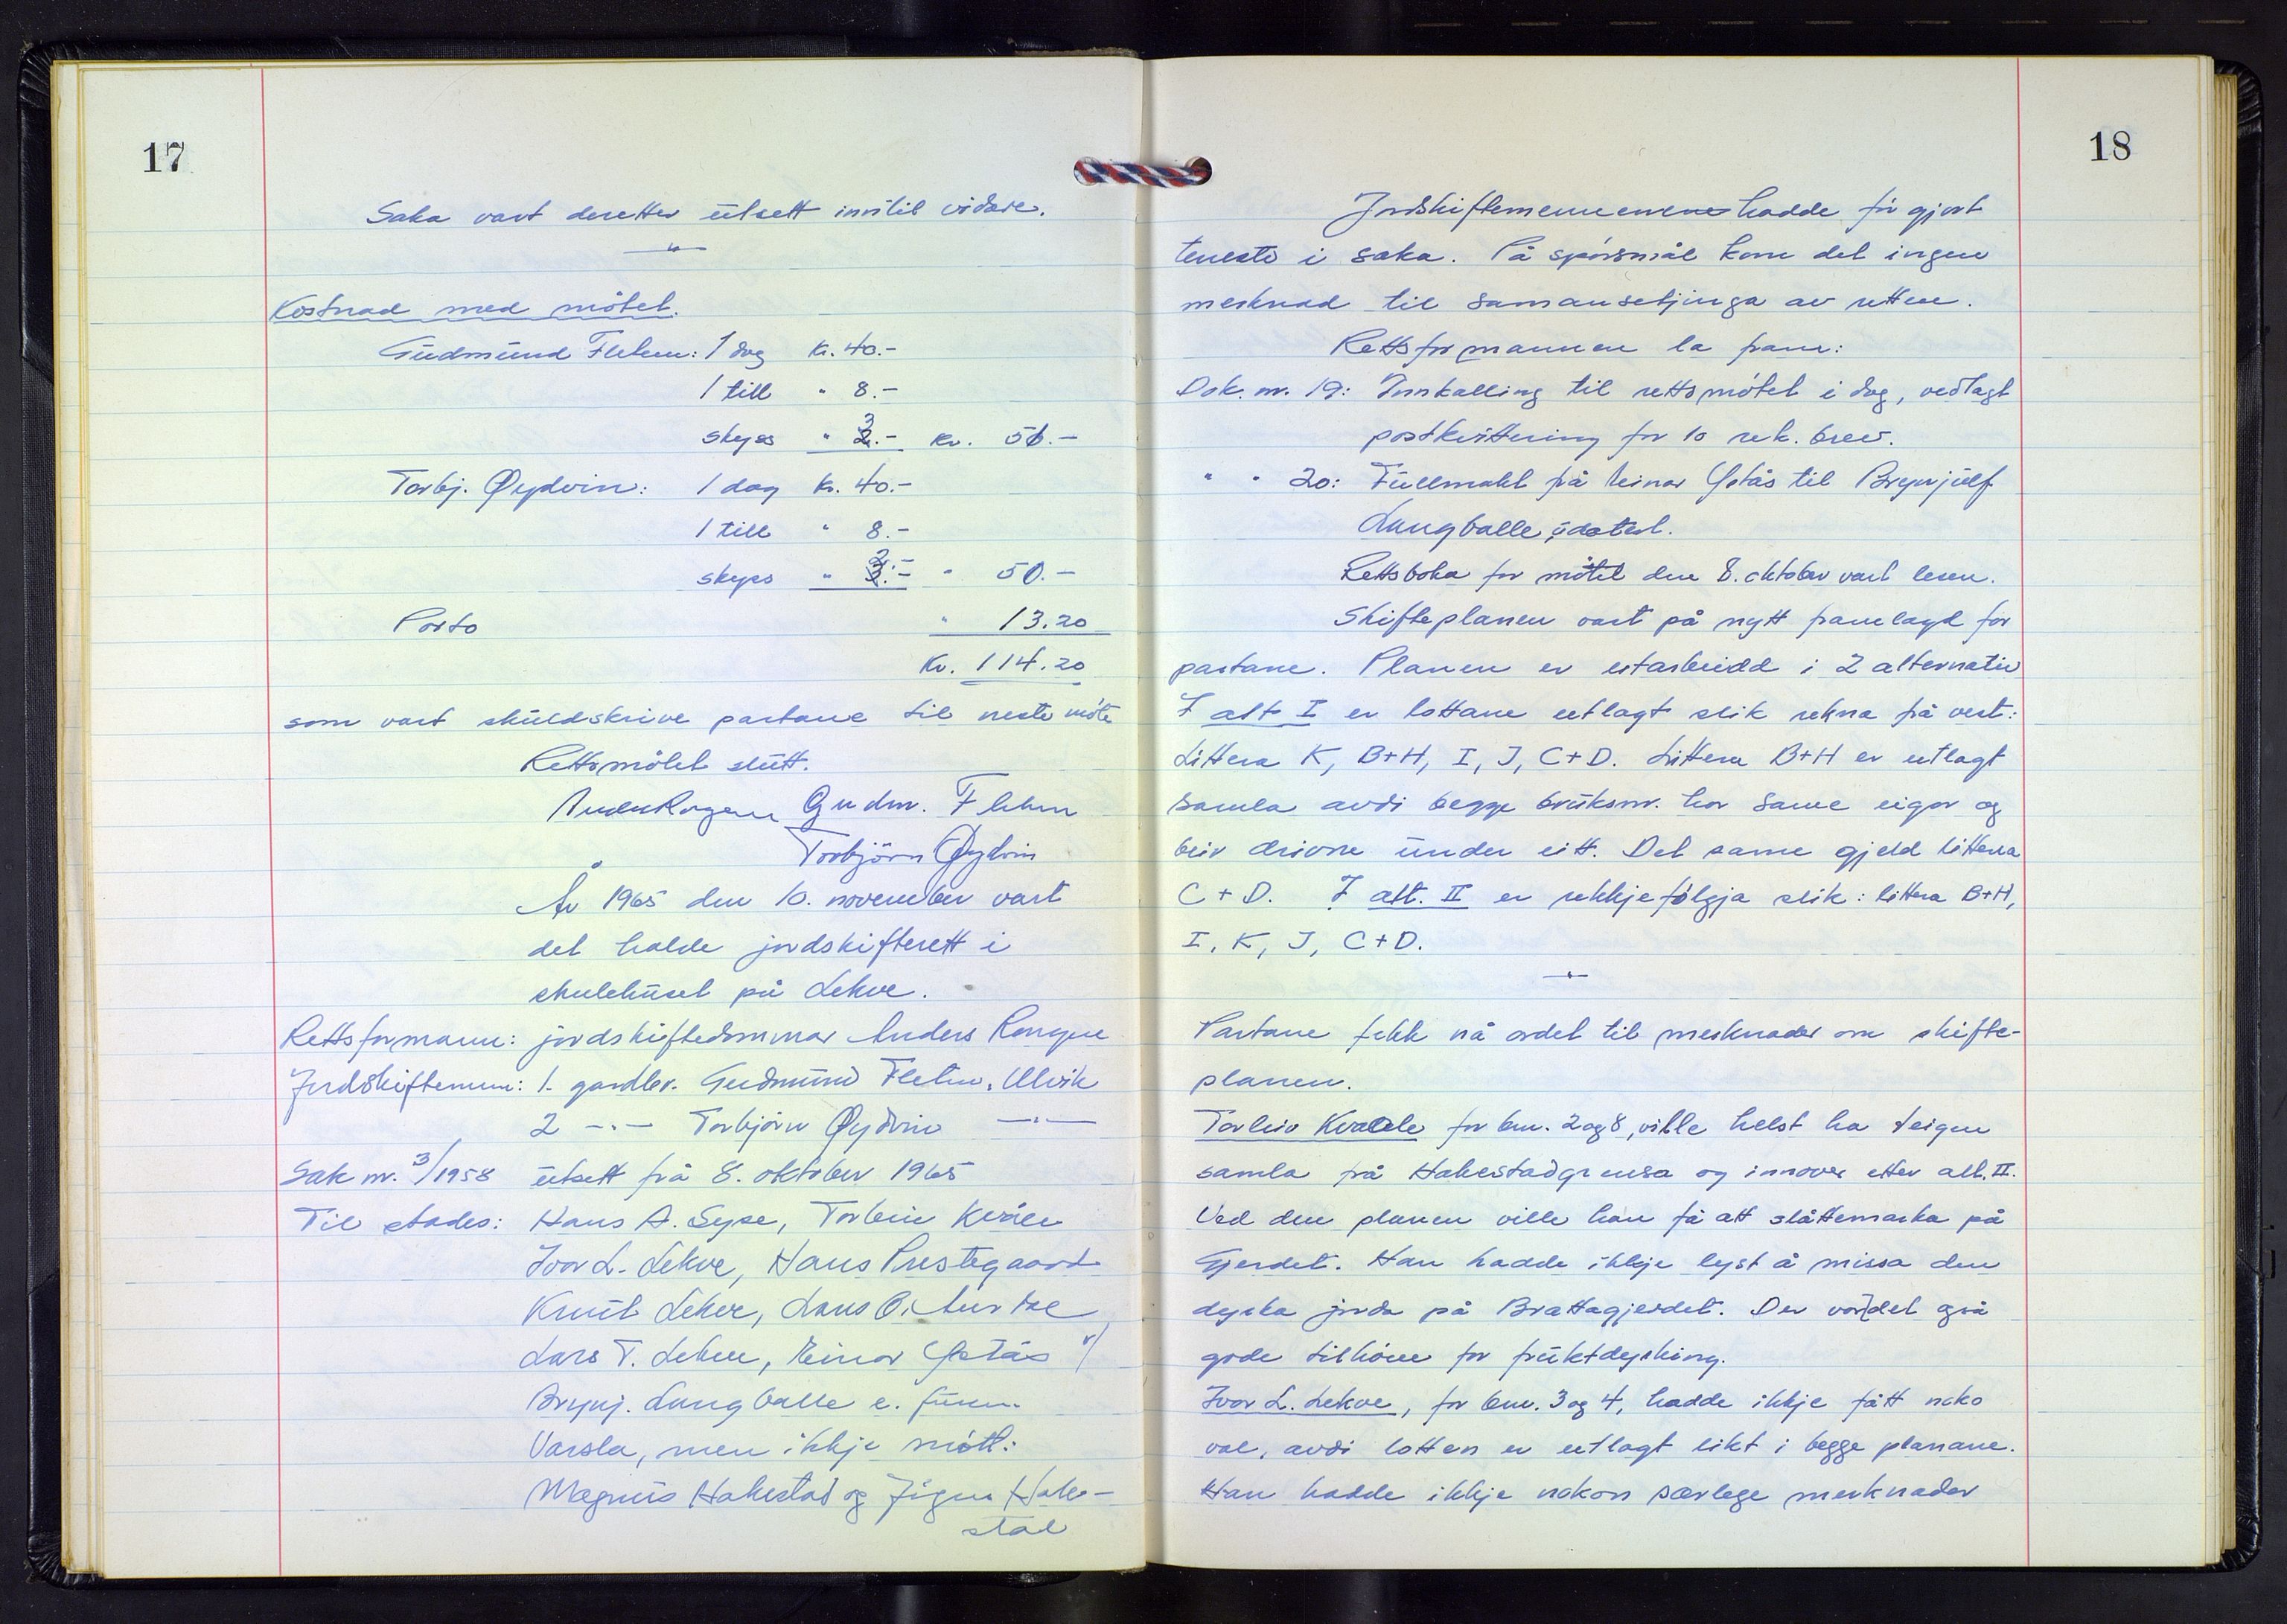 17
Saka vart deretter utsett inntil vidare.
"
Kostnad med møtet.
Gudmund Flehm: 1 dag kr. 40.-
1 till " 8.-
skyss " 3.- kr. 51.-
Torbj. Øydvin: 1 dag kr. 40.-
1 till " 8.-
skyss " 2.- " 50.-
Porto " 13.20
Kr. 114.20
som vart skuldskrive partane til neste møte
Rettsmøtet slutt.
Gudm. Flehm
Torbjörn Øydvin
År 1965 den 10. november vart
det halde jordskifterett i
skulehuset på Lekve.
Rettsformann: jordskiftedommar Anders Rongen
Jordskiftemenn: 1. gardbr. Gudmund Flehm, Ulvik
2 -"- Torbjörn Øydvin -"-
Sak nr. 3/1958 utsett frå 8. oktober 1965
Til stades: Hans A. Syse, Torleiv Kvåle
Ivar L. Lekve, Hans Prestegaard
Knut Lekve, Lars O.
Lars T. Lekve, Einar Ystås v/
Brynj. Langballe e. fullm.
Varsla, men ikkje møtt:
Magnus Hakestad og Hake-
stad
18
Jordskiftemennene hadde før gjort
teneste i saka. På spørsmål kom det ingen
merknad til samansetjinga av retten.
Rettsformannen la fram:
Dok. nr. 19: Innkalling til rettsmøtet i dag, vedlagt
postkvittering for 10 rek. brev.
" " 20: Fullmakt frå Einar Ystås til Brynjulf
Langballe, udatert.
Rettsboka for møtet den 8. oktober vart lesen.
Skifteplanen vart på nytt framlagd for
partane. Planen er utarbeidd i 2 alternativ
I alt I er lottane utlagt slik rekna frå vest:
Littera K, B+H, I, J, C+D. Littera B+H er utlagt
samla avdi begge bruksnr. har same eigar og
beiv drivne under eitt. Det same gjeld littera
C + D. I alt. II er rekkjefølgja slik: littera B+H,
I, K, J, C+D.
"
Partane fekk nå ordet til merknader om skifte-
planen.
Torleiv Kvaale for bnr. 2 og 8, ville helst ha teigen
samla frå Hakestadgrensa og innover etter alt. II.
Ved den planen ville han få att slåttemarka på
Gjerdet. Han hadde ikkje lyst å missa den
dyrka jorda på Brattagjerdet. Der var det også
gode tilhøve for fruktdyrking.
Ivar L. Lekve, for bnr. 3 og 4, hadde ikkje fått noko
val, avdi lotten er utlagt likt i begge planane.
Han hadde ikkje nokon særlege merknader